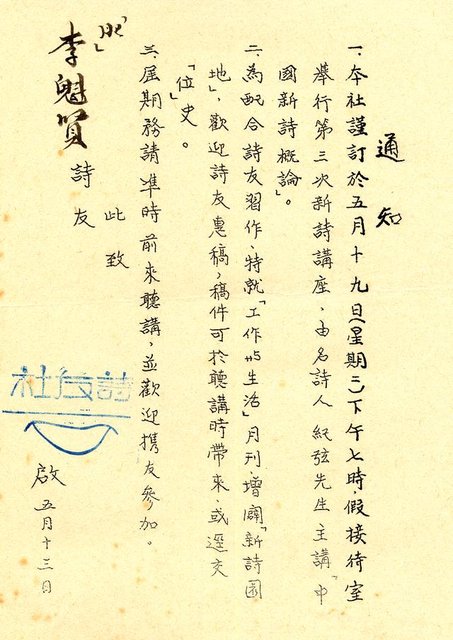 通知
一、本社謹訂於五月十九日(星期三)下午七時，假接待室
舉行第三次新詩講座，由名詩人紀弦先生主講「中
國新詩概論」。
二、為配合詩友習作，特就「工作与生活」月刊，增闢「新詩園
地」，歡迎詩友惠稿，稿件可於聽講時帶來，或逕交
史。
三、屆期務請準時前來聽講，並歡迎携友參加。
此致
李魁賢 詩友
詩友社
啟 五月十三日